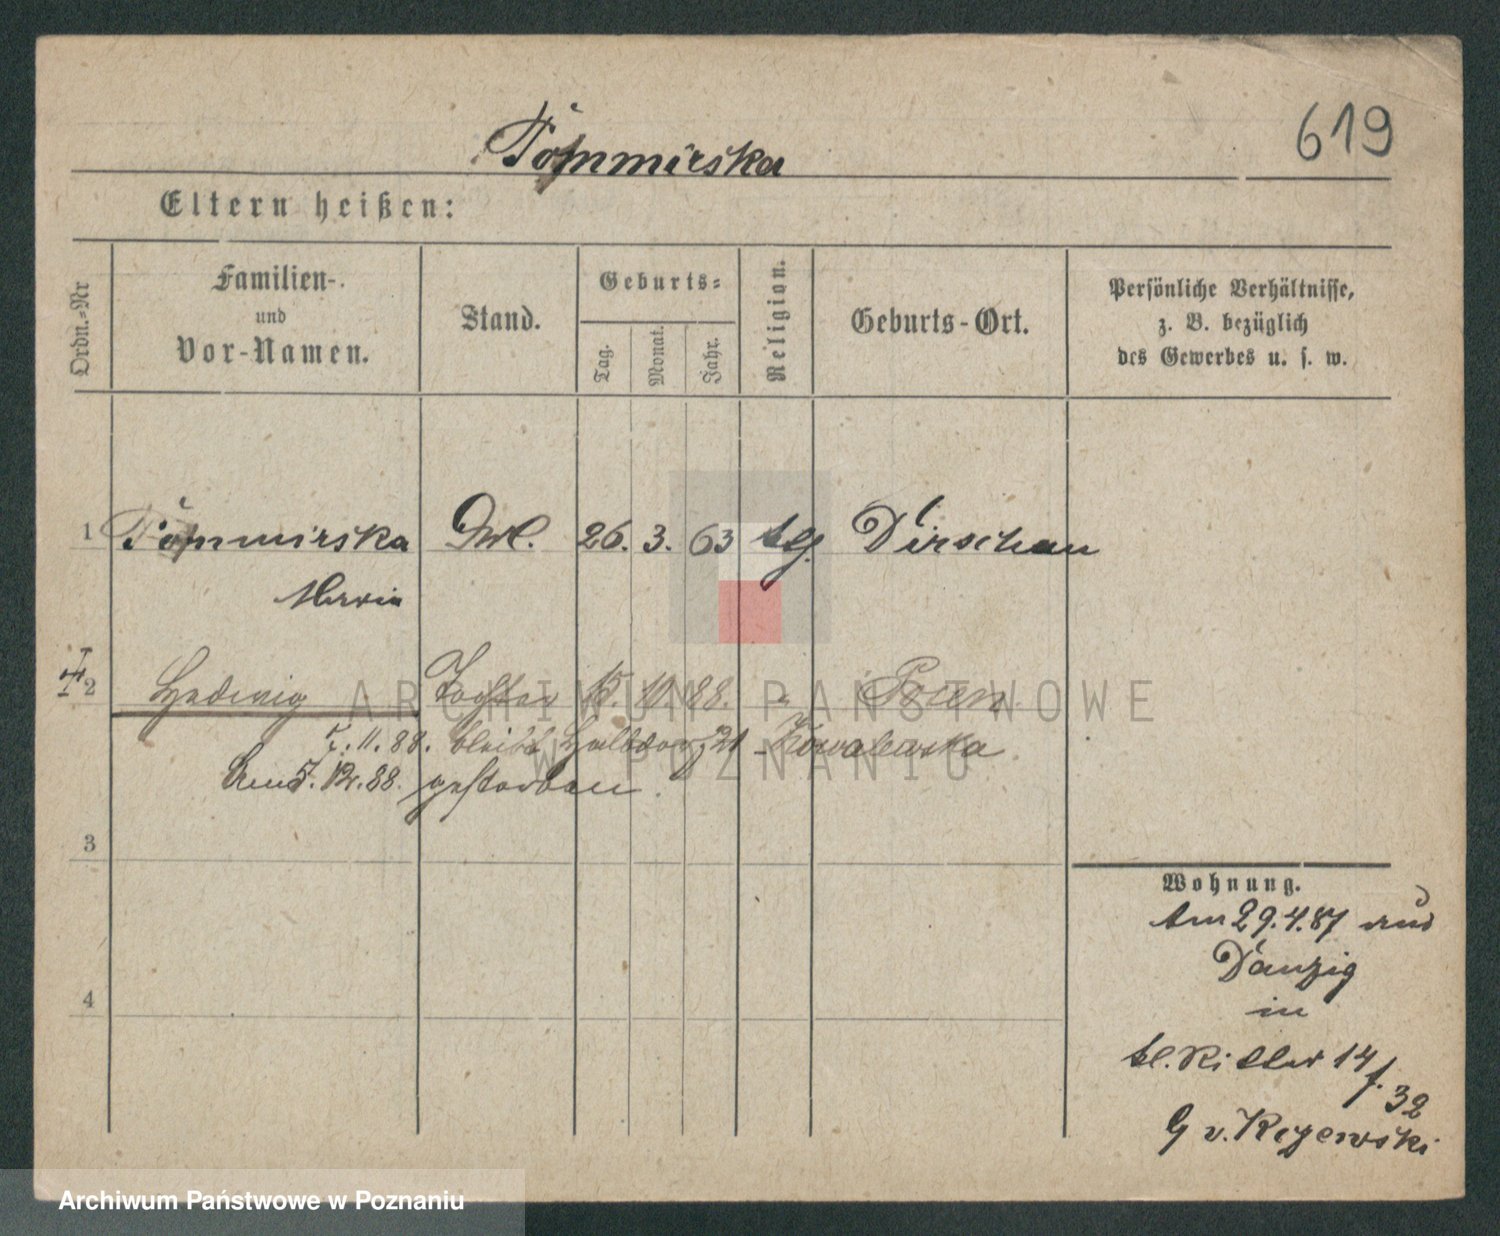 619
Tommirska
Eltern heißen:
Ordn.-Nr
Familien-
und
Vor-Namen.
Stand.
Geburts-
Tag.
Monat.
Jahr.
Religion.
Geburts-Ort.
Persönliche Verhältnisse,
z. B. bezüglich
des Gewerbes u. s. w.
1 Tommirska 26. 3. 63 Dirschau
Maria
2 Hedwig Tochter 15. 11. 88. " Posen
.11.88. bleibt Halbdorf 21 Kowalewska
Am 5. 12. 88. gestorben.
3
4
Wohnung.
Am 29.4.87 aus
Danzig
in
kl. Ritter 14
f. 32
G v. Kijewski
ARCHIWUM PAŃSTWOWE
W POZNANIU
Archiwum Państwowe w Poznaniu